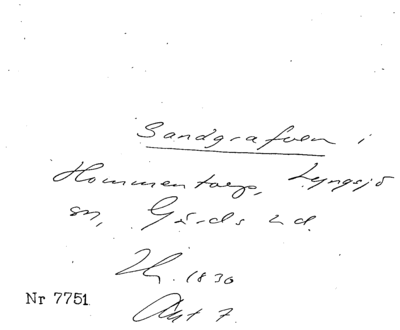 Sandgrafven i
Hommentorp, Lyngsjö
sn, Gärds hd.
1830
Nr 7751
Akt 7.